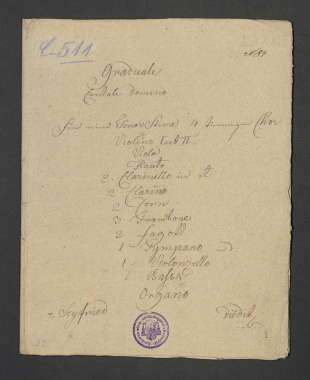 C-511
No 54
Graduale
Cantate domino
Für eine Tenor Stime 4 stimigen Chor
Violino I et II
Viola
Flauto
2 Clarinetto in A
2 Clarino
2 Corn
3 Trombone
2 Fagott
1 Tympano
1 Violoncello
1 Basso
Organo
Seyfried